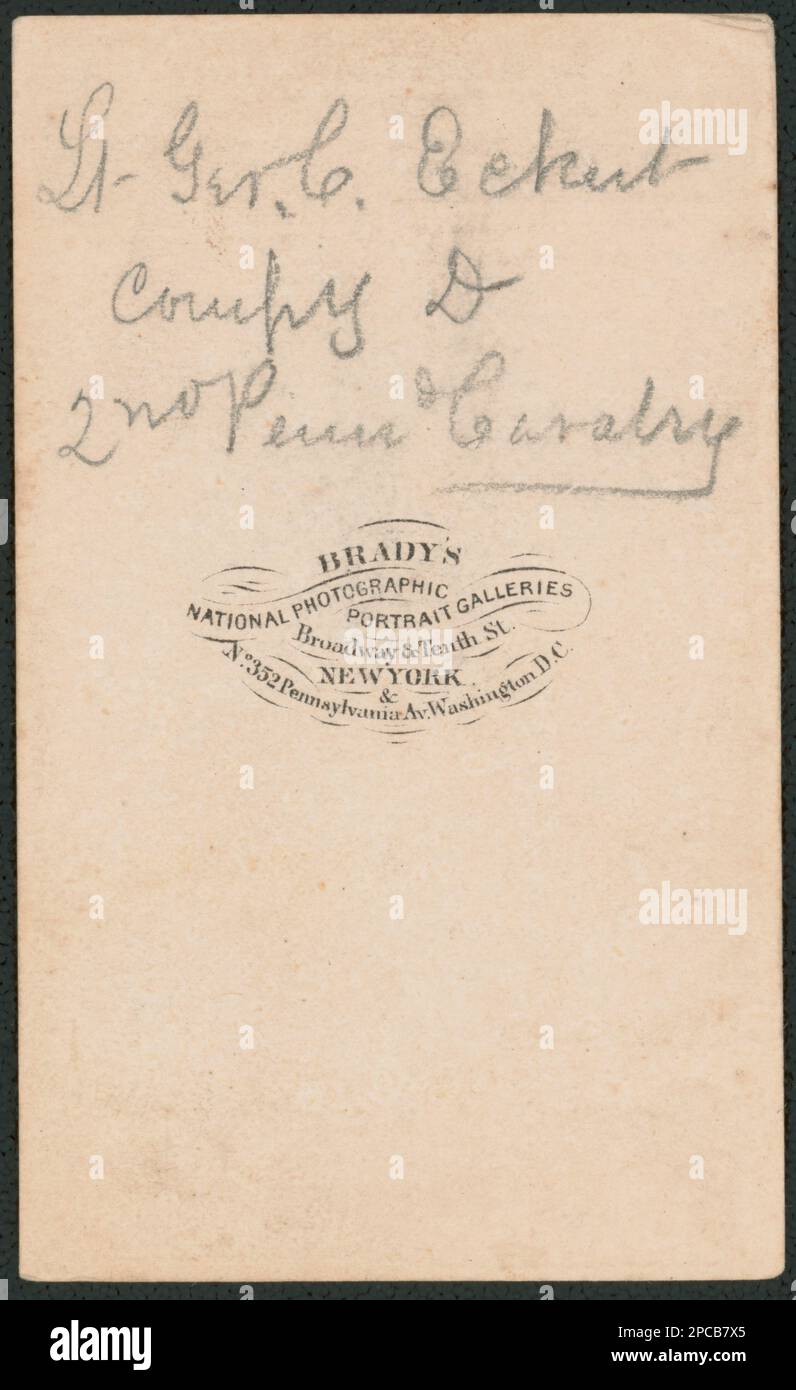 Lt Geo. C. Eckert
Compy D
2nd Penn'd Cavalry
BRADY'S
NATIONAL PHOTOGRAPHIC
PORTRAIT GALLERIES
Broadway & Tenth St.
NEW YORK
&
No. 352 Pennsylvania Av. Washington D.C.
alamy
alamy
Image ID: 2PCB7X5
www.alamy.com